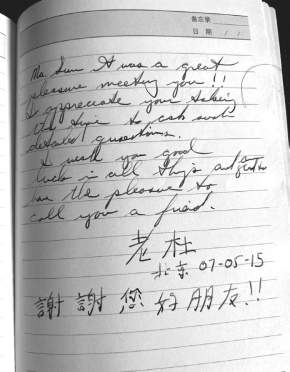 备忘录
日期 / /
Ms Sun It was a great
pleasure meeting you!!
I appreciate your taking
the time to ask such
detailed questions.
I wish you good
luck in all things and
have the pleasure to
call you a friend.
老杜
北京 07-05-15
謝謝您 好朋友!!